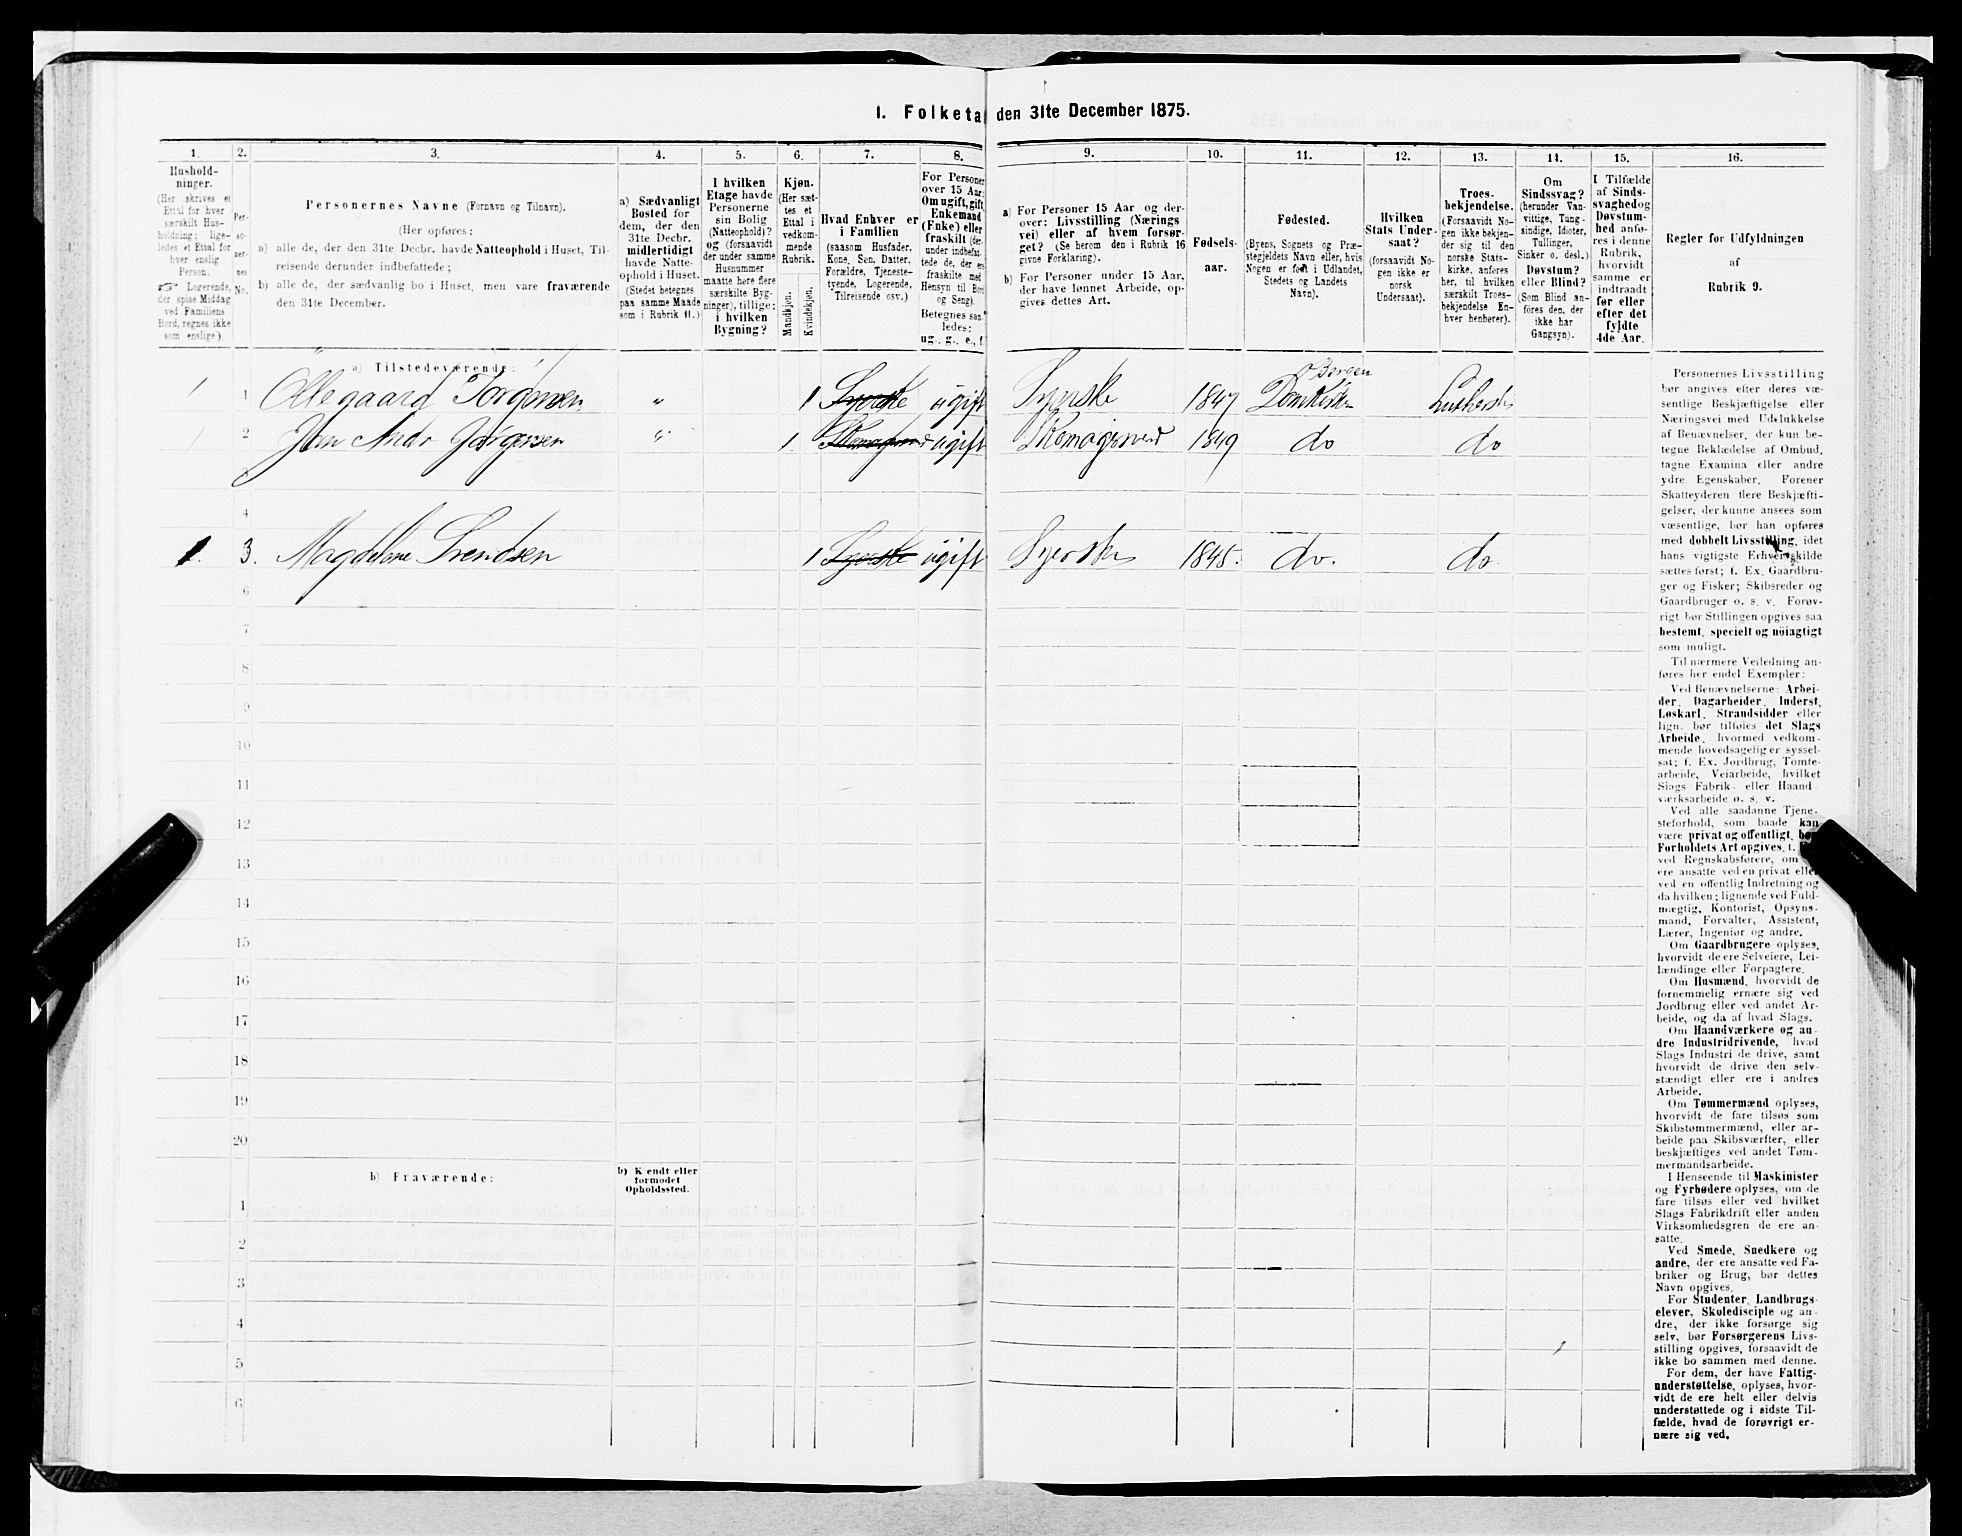 1. Folketal den 31te December 1875.
1.
Hushold-
ninger.
(Her skrives et
Ettal for hver
særskilt Hus-
holdning; lige-
ledes et Ettal for
hver enslig
Person.
☞ Logerende,
der spise Middag
ved Familiens
Bord, regnes ikke
som enslige)
2.
Per-
so-
ner-
nes
No.
3.
Personernes Navne (Fornavn og Tilnavn).
(Her opføres:
a) alle de, der den 31te Decbr. havde Natteophold i Huset, Til-
reisende derunder indbefattede;
b) alle de, der sædvanlig bo i Huset, men vare fraværende
den 31te December.
4.
a) Sædvanligt
Bosted for
dem, der den
31te Decbr.
midlertidigt
havde Natte-
ophold i Huset.
(Stedet betegnes
paa samme Maade
som i Rubrik 11.)
5.
I hvilken
Etage havde
Personerne
sin Bolig
(Natteophold)?
og (forsaavidt
der under samme
Husnummer
maatte høre flere
særskilte Byg-
ninger), tillige:
i hvilken
Bygning?
6.
Kjøn.
(Her sæt-
tes et
Ettal i
vedkom-
mende
Rubrik.
Mandkjøn.
Kvindekjøn.
7.
Hvad Enhver er
i Familien
(saasom Husfader,
Kone, Søn, Datter,
Forældre, Tjeneste-
tyende, Logerende,
Tilreisende osv.)
8.
For Personer
over 15 Aar:
Om ugift, gift,
Enkemand
(Enke) eller
fraskilt (der-
under indbefat-
tede de, der ere
fraskilte med
Hensyn til Bord
og Seng).
Betegnes saa-
ledes:
ug., g., e., f.
9.
a) For Personer 15 Aar og der-
over: Livsstilling (Nærings
vei) eller af hvem forsør-
get? (Se herom den i Rubrik 16
givne Forklaring).
b) For Personer under 15 Aar,
der have lønnet Arbeide, op-
gives dettes Art.
10.
Fødsels-
aar.
11.
Fødested.
(Byens, Sognets og Præ-
stegjeldets Navn eller, hvis
Nogen er født i Udlandet,
Stedets og Landets
Navn).
12.
Hvilken
Stats Under-
saat?
(forsaavidt No-
gen ikke er
norsk
Undersaat).
13.
Troes-
bekjendelse.
(Forsaavidt No-
gen ikke bekjen-
der sig til den
norske Stats-
kirke, anføres
her, til hvilken
særskilt Troes-
bekjendelse En-
hver henhører).
14.
Om
Sindssvag?
(herunder Van-
vittige, Tung-
sindige, Idioter,
Tullinger,
Sinker o. desl.)
Døvstum?
eller Blind?
(Som Blind an-
føres den, der
ikke har
Gangsyn).
15.
I Tilfælde
af Sinds-
svaghed og
Døvstum-
hed anfø-
res i denne
Rubrik,
hvorvidt
samme er
indtraadt
før eller
efter det
fyldte
4de Aar.
16.
Regler for Udfyldningen
af
Rubrik 9.
a) Tilstedeværende:
1 1 Ollegaard Jørgensen " 1 Syerske ugift Syerske 1847 Bergen Domkirken Lutherske
1 2 Jhan Andr Jørgensen " 1. Skomagersvend ugift Skomagersvend 1849 do do
3
4
1. 3. Magdalene Svendsen 1 Syerske ugift Syerske 1845. do. do
6
7
8
9
10
11
12
13
14
15
16
17
18
19
20
b) Fraværende:
b) Kjendt eller
formodet
Opholdssted.
1
2
3
4
5
6
Personernes Livsstilling
bør angives efter deres væ-
sentlige Beskjæftigelse eller
Næringsvei med Udelukkelse
af Benævnelser, der kun be-
tegne Beklædelse af Ombud,
tagne Examina eller andre
ydre Egenskaber. Forener
Skatteyderen flere Beskjæfti-
gelser, der kunne ansees som
væsentlige, bør han opføres
med dobbelt Livsstilling, idet
hans vigtigste Erhvervskilde
sættes først; f. Ex. Gaardbru-
ger og Fisker; Skibsreder og
Gaardbruger o. s. v. Forøv-
rigt bør Stillingen opgives saa
bestemt, specielt og nöiagtigt
som muligt.
Til nærmere Veiledning an-
føres her endel Exempler:
Ved Benævnelserne: Arbei-
der, Dagarbeider, Inderst,
Løskarl, Strandsidder eller
lign. bør tilføies det Slags
Arbeide, hvormed vedkom-
mende hovedsagelig er syssel-
sat; f. Ex. Jordbrug, Tomte-
arbeide, Veiarbeide, hvilket
Slags Fabrik- eller Haand-
værksarbeide o. s. v.
Ved alle saadanne Tjene-
steforhold, som baade kan
være privat og offentligt, bør
Forholdets Art opgives, t.
ved Regnskabsførere, om
ere ansatte ved en privat eller
ved en offentlig Indretning og
da hvilken; lignende ved Fuld-
mægtig, Kontorist, Opsyns-
mand, Forvalter, Assistent,
Lærer, Ingeniør og andre.
Om Gaardbrugere oplyses,
hvorvidt de ere Selveiere, Lei-
lændinge eller Forpagtere.
Om Husmænd, hvorvidt de
fornemmelig ernære sig ved
Jordbrug eller ved andet Ar-
beide, og da af hvad Slags.
Om Haandværkere og an-
dre Industridrivende, hvad
Slags Industri de drive, samt
hvorvidt de drive den selv-
stændigt eller ere i andres
Arbeide.
Om Tømmermænd oplyses,
hvorvidt de fare tilsøs som
Skibstømmermænd, eller ar-
beide paa Skibsværfter, eller
beskjæftiges ved andet Tøm-
mermandsarbeide.
I Henseende til Maskinister
og Fyrbødere oplyses, om de
fare tilsøs eller ved hvilket
Slags Fabrikdrift eller anden
Virksomhedsgren de ere an-
satte.
Ved Smede, Snedkere og
andre, der ere ansatte ved Fa-
briker og Brug, bør dettes
Navn opgives.
For Studenter, Landbrugs-
elever, Skoledisciple og an-
dre, der ikke forsørge sig
selv, bør Forsørgerens Livs-
stilling opgives, forsaavidt de
ikke bo sammen med denne.
For dem, der have Fattig-
understøttelse, oplyses, hvor-
vidt de ere helt eller delvis
understøttede og i sidste Til-
fælde, hvad de forøvrigt er-
nære sig ved.